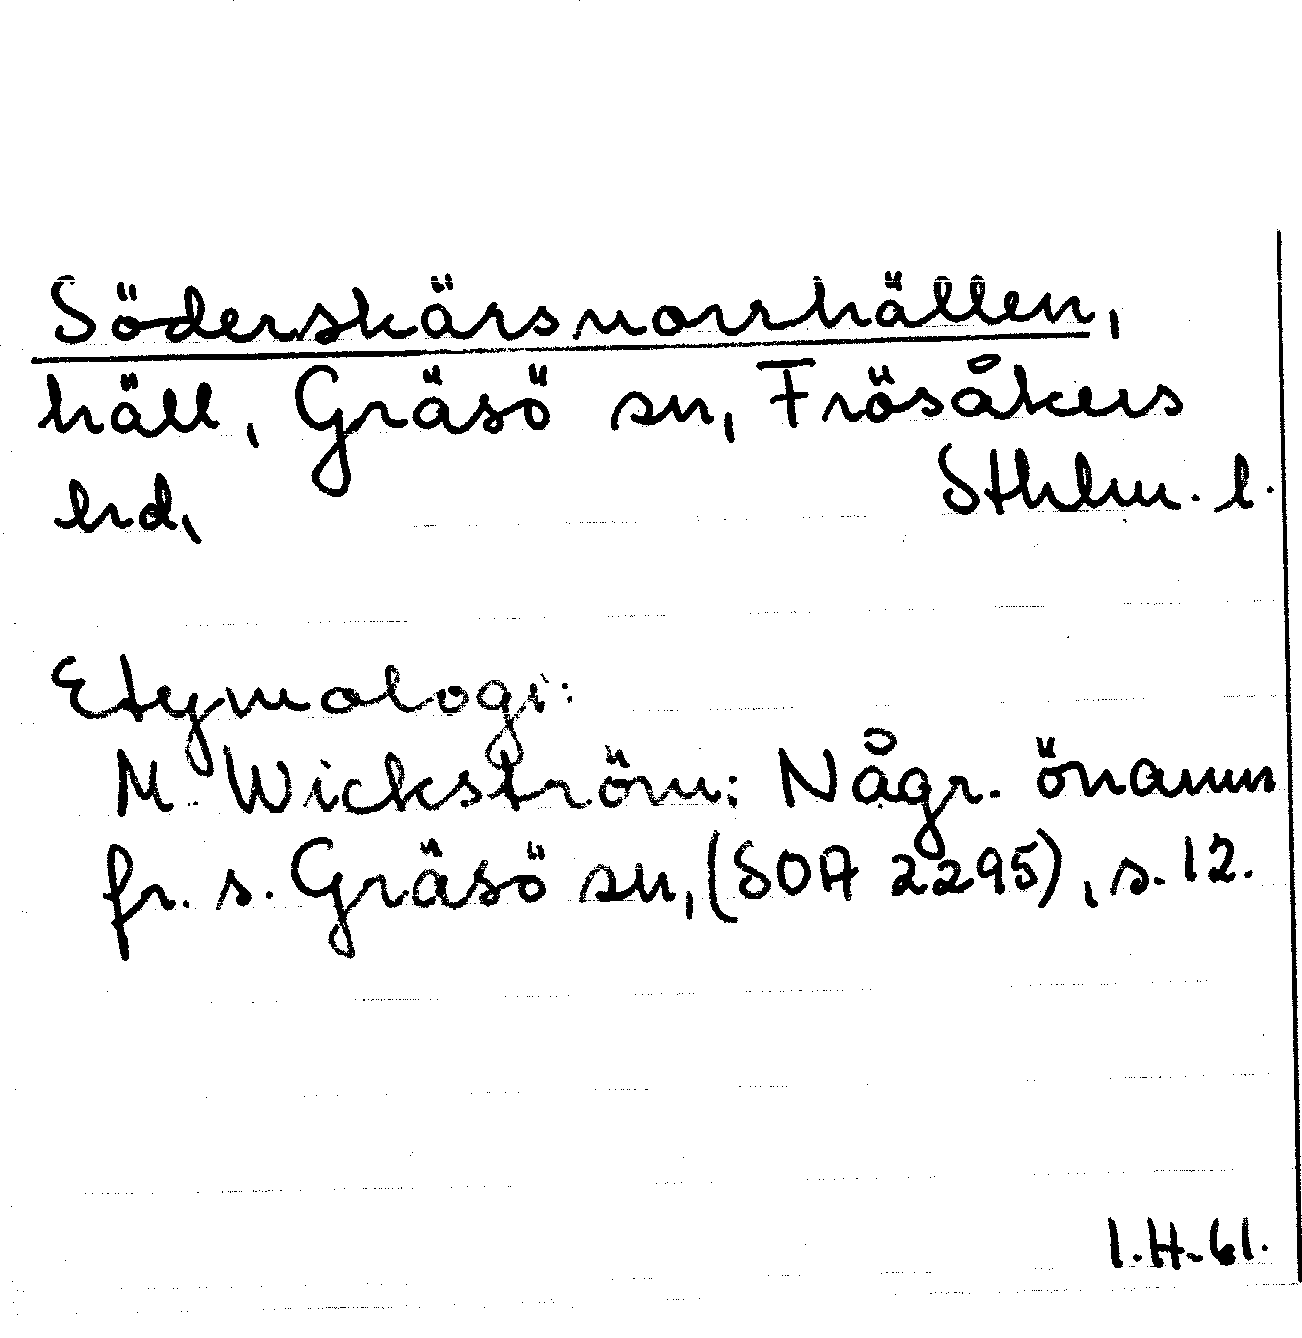 Söderskärsnorrhällen,
häll, Gräsö sn, Frösåkers
hrd,
Sthlm. l.
Etymologi:
M Wickström: Någr. önamn
fr. s. Gräsö sn, (SOA 2295), s. 12.
I.H-61.